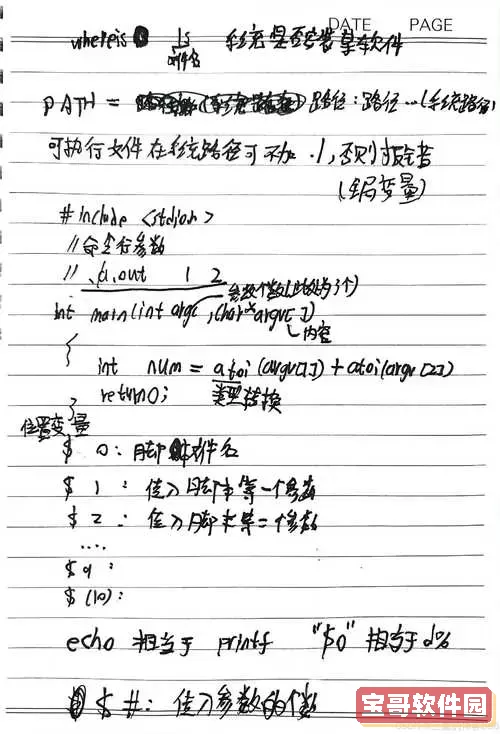 DATE PAGE
whereis ls 系统是否安装某软件
文件名
PATH = 路径:路径…(系统路径)
可执行文件在系统路径可不加 ./,否则报错
(全局变量)
#include <stdion>
//命令行参数
// ./a.out 1 2
参数个数(此处为3个)
int main(int argc, char* argv[])
内容
{
int num = atoi(argv[1]) + atoi(argv[2])
return 0; 类型转换
}
位置变量
$ 0: 脚本文件名
$ 1: 传入脚本第一个参数
$ 2: 传入脚本第二个参数
....
$ 9:
$ (10):
echo 相当于 printf "$0" 相当于 d%
$ #: 传入参数的个数
宝哥软件园